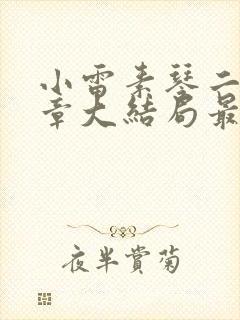 小雷素琴二
章大结局最
夜半赏菊